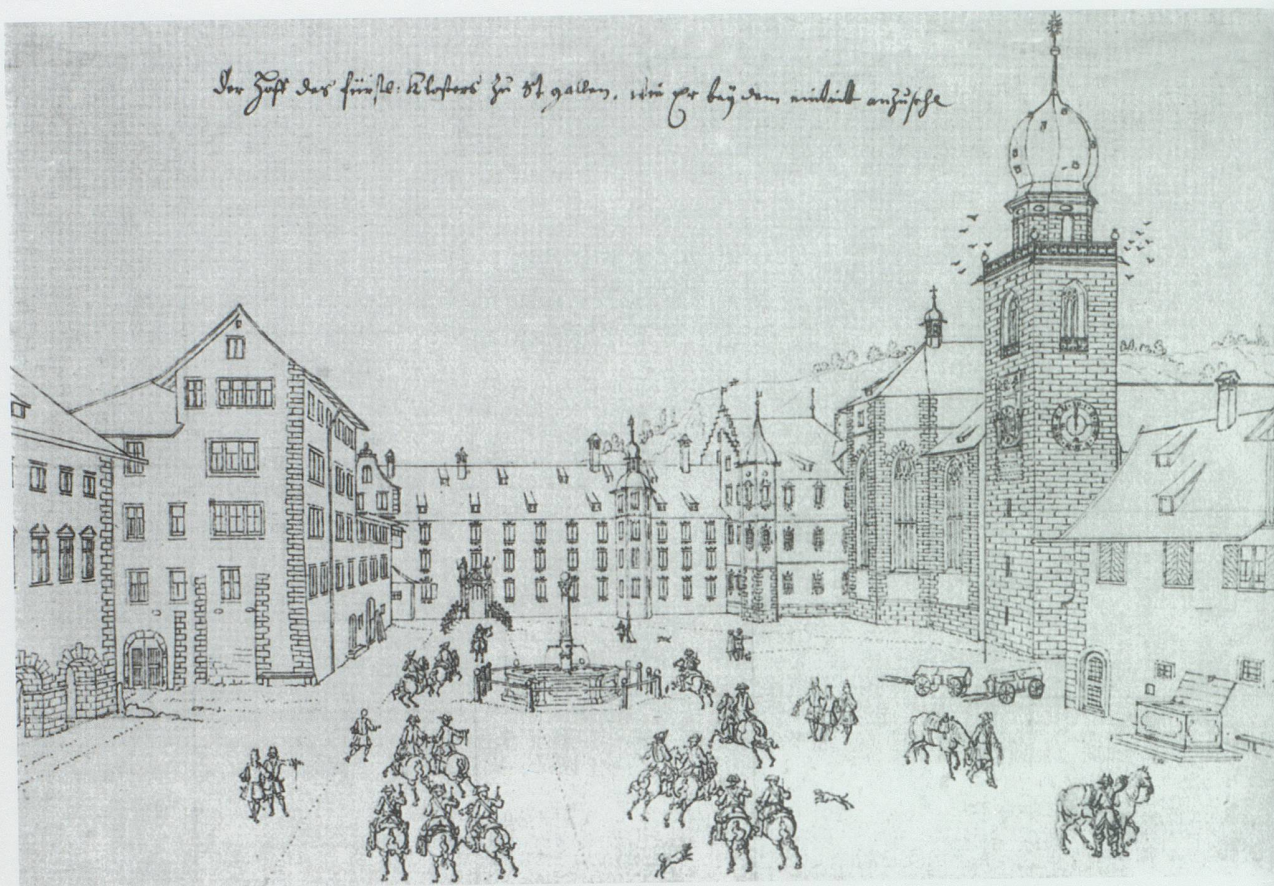 Der Hoff des fürstl: Klosters zu St gallen, wie Er beÿ dem eintritt anzusehe